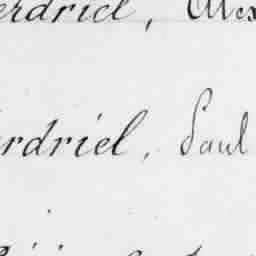 erdriel, Alex
erdriel, Paul